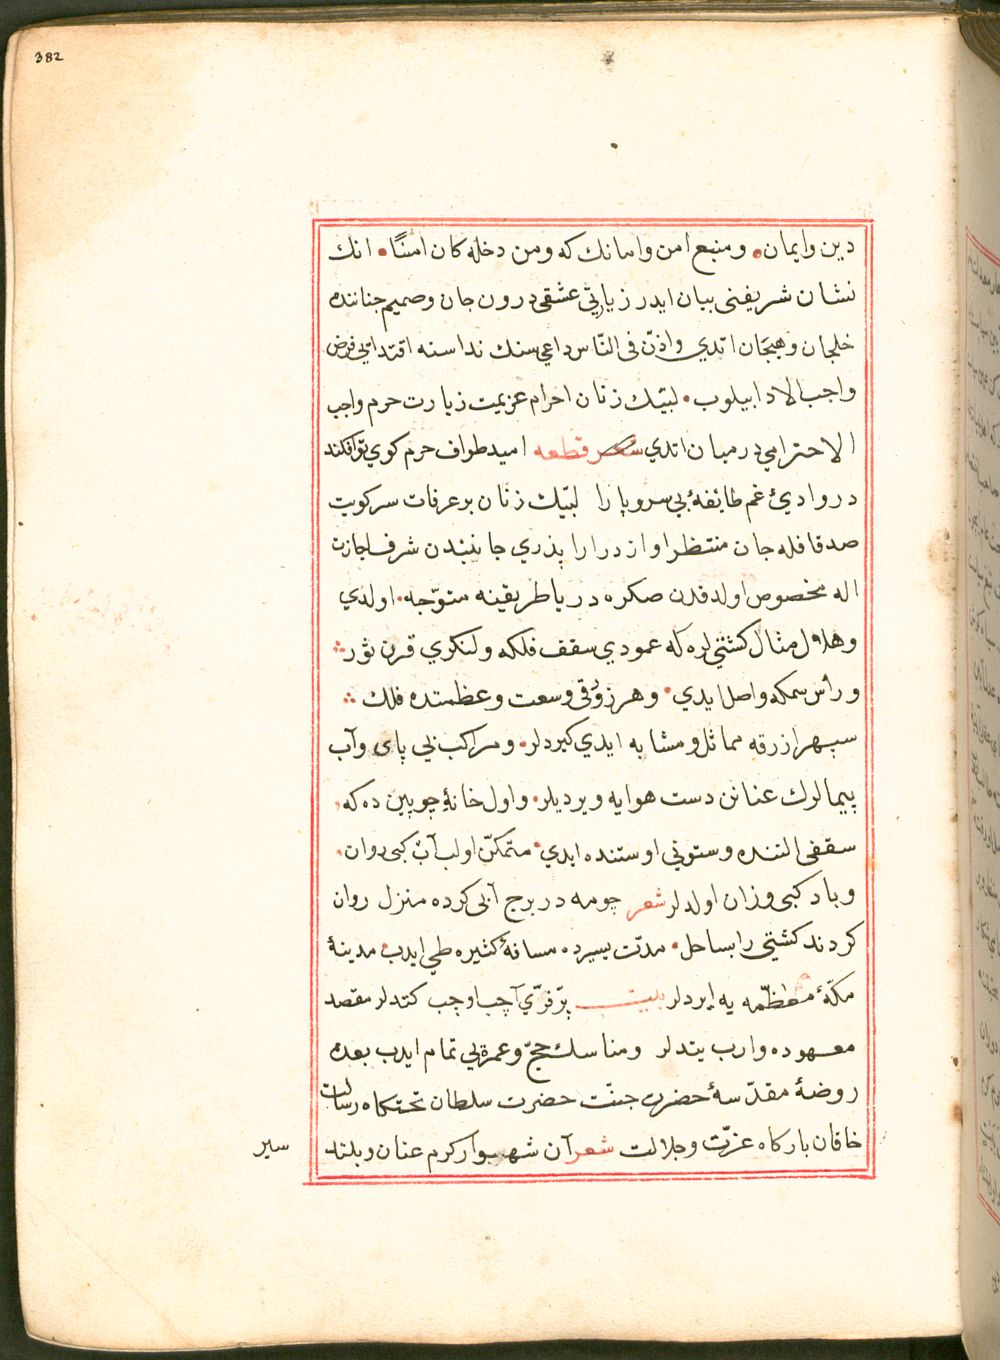 382
دين وايمان • ومنبع امن وامانك كه ومن دخله كان امنًا • انك
نشان شريفنى بيان ايدر زيارتي عشقى درون جان وصميم جنانده
خلجان وهيجان اتدي واذّن فى النّاس داعي سنك نداسنه اقتدا فرض
واجب الادا بيلوب • لبّيك زنان احرام عزيمت زيارت حرم واجب
الاحترامي در ميان اتدي شعر قطعه اميد طواف حرم كوي تو افكند
در وادئ غم طائفۀ بي سر وپا را لبّيك زنان بر عرفات سر كويت
صد قافله جان منتظر اواز درا را پدري جانبندن شرف اجازت
اله مخصوص اولدقدن صكره دريا طريقينه متوجّه • اولدي
وهلال مثال كشتي لره كه عمودي سقف فلكه ولنكري قرن ثور
ورأس سمكه واصل ايدي • وهر زورقى وسعت وعظمتده فلك
سپهر ازرقه مماثل ومشابه ايدي كيرديلر • ومراكب بي پاى وآب
پيمالرك عنانن دست هوايه ويرديلر • واول خانۀ چوبين ده كه
سقفى التنده وستوني اوستنده ايدي • متمكّن اولب آب كبى روان
وباد كبى وزان اولدلر شعر چو مه در برج آبى كرده منزل روان
كردند كشتي را بساحل • مدّت يسيرده مسافۀ كثيره طي ايدب مدينۀ
مكّۀ معظّمه يه ايرديلر بيت برّ فرّي آچب اوچب كتديلر مقصد
معهوده وارب يتديلر ومناسك حجّ وعمرۀ بي تمام ايدب بعده
روضۀ مقدّسۀ حضرت جنّت حضرت سلطان تختكاه رسالت
خاقان باركاه عزّت وجلالت شعر آن شهسوار كرم عنان وبلند
سير